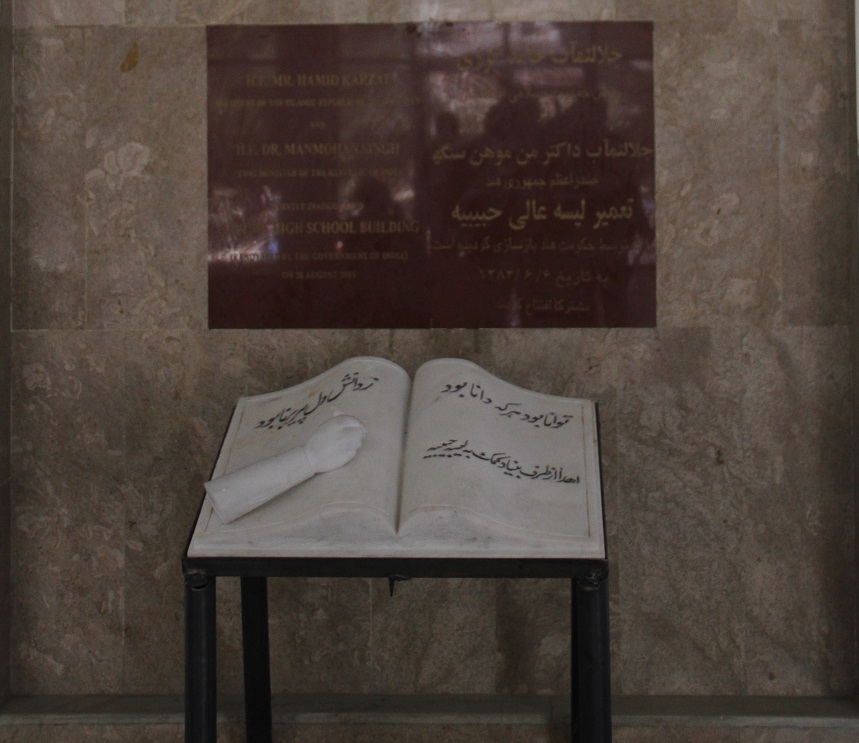 H.E. MR. HAMID KARZAI
PRESIDENT OF THE ISLAMIC REPUBLIC OF
AND
H.E. DR. MANMOHAN SINGH
PRIME MINISTER OF THE REPUBLIC OF INDIA
JOINTLY INAUGURATED
HIGH SCHOOL BUILDING
BY THE GOVERNMENT OF INDIA)
ON 28 AUGUST 2005
جلالتماب حامد کرزی
جلالتماب داکتر من موهن سنگھ
صدراعظم جمهوری هند
تعمیر لیسه عالی حبیبیه
توسط حکومت هند بازسازی گردیده است
به تاریخ ۶ / ۶ / ۱۳۸۴
مشترکا افتتاح
توانا بود هرکه دانا بود
زدانش دل پیر برنا بود
اهدا از طرف بنیاد کمک به لیسه حبیبیه